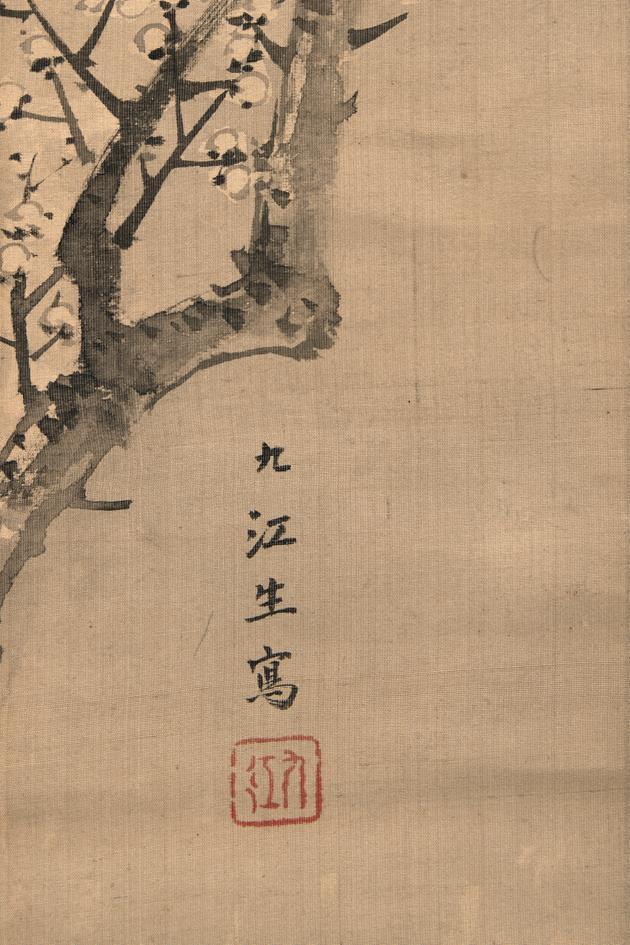 九江生寫
九江